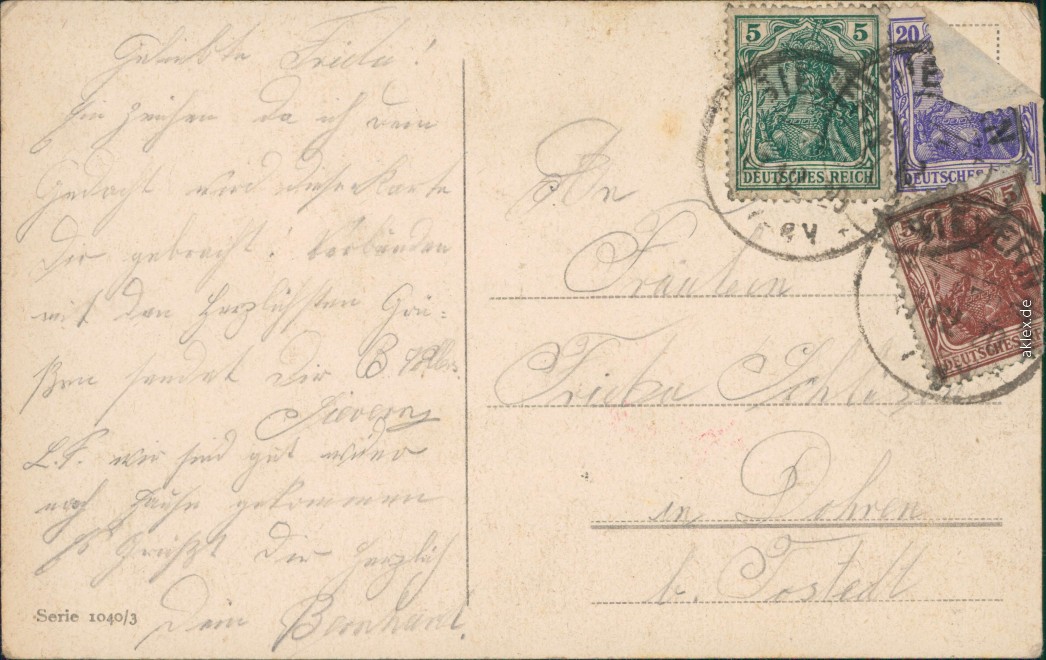 Geliebte Frieda!
Ein Zeichen da ich dein
Gedacht wird diese Karte
Dir gebracht! Verbunden
mit den Herzlichsten Grü=
ßen sendet dir B.
L.F. wir sind gut wieder
nach Hause gekommen
Es Grüßt Dir Herzlich
Dein Bernhard.
Serie 1040/3
An
Fräulein
Frieda
in Dohren
b. Tostedt
5 5
DEUTSCHES REICH
20
DEUTSCHES
5 5
DEUTSCHES
aklex.de